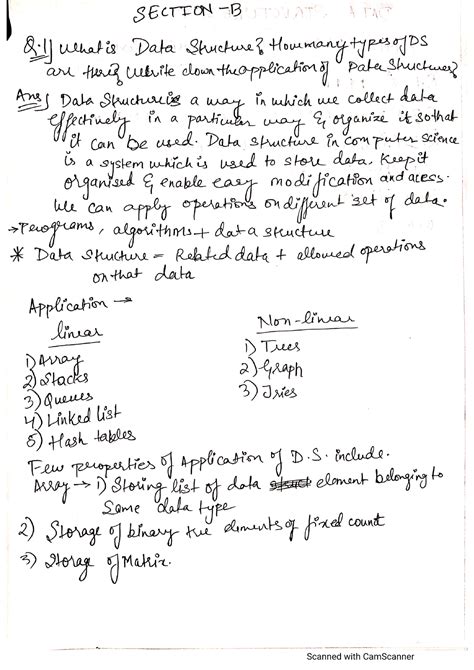 SECTION-B
Q.1) What is Data Structure? How many types of DS
are there? Write down the application of Data Structures?
Ans) Data Structure is a way in which we collect data
effectively in a particular way & organize it so that
it can be used. Data structure in computer science
is a system which is used to store data, keep it
organised & enable easy modification and acess.
We can apply operations on different set of data.
→ Programs, algorithms + data structure
* Data Structure = Related data + allowed operations
on that data
Application →
linear
1) Array
2) Stacks
3) Queues
4) Linked list
5) Hash tables
Non-linear
1) Trees
2) Graph
3) Tries
Few properties of Application of D.S. include.
Array → 1) Storing list of data element belonging to
Same data type
2) Storage of binary tree elements of fixed count
3) Storage of Matrix.
Scanned with CamScanner